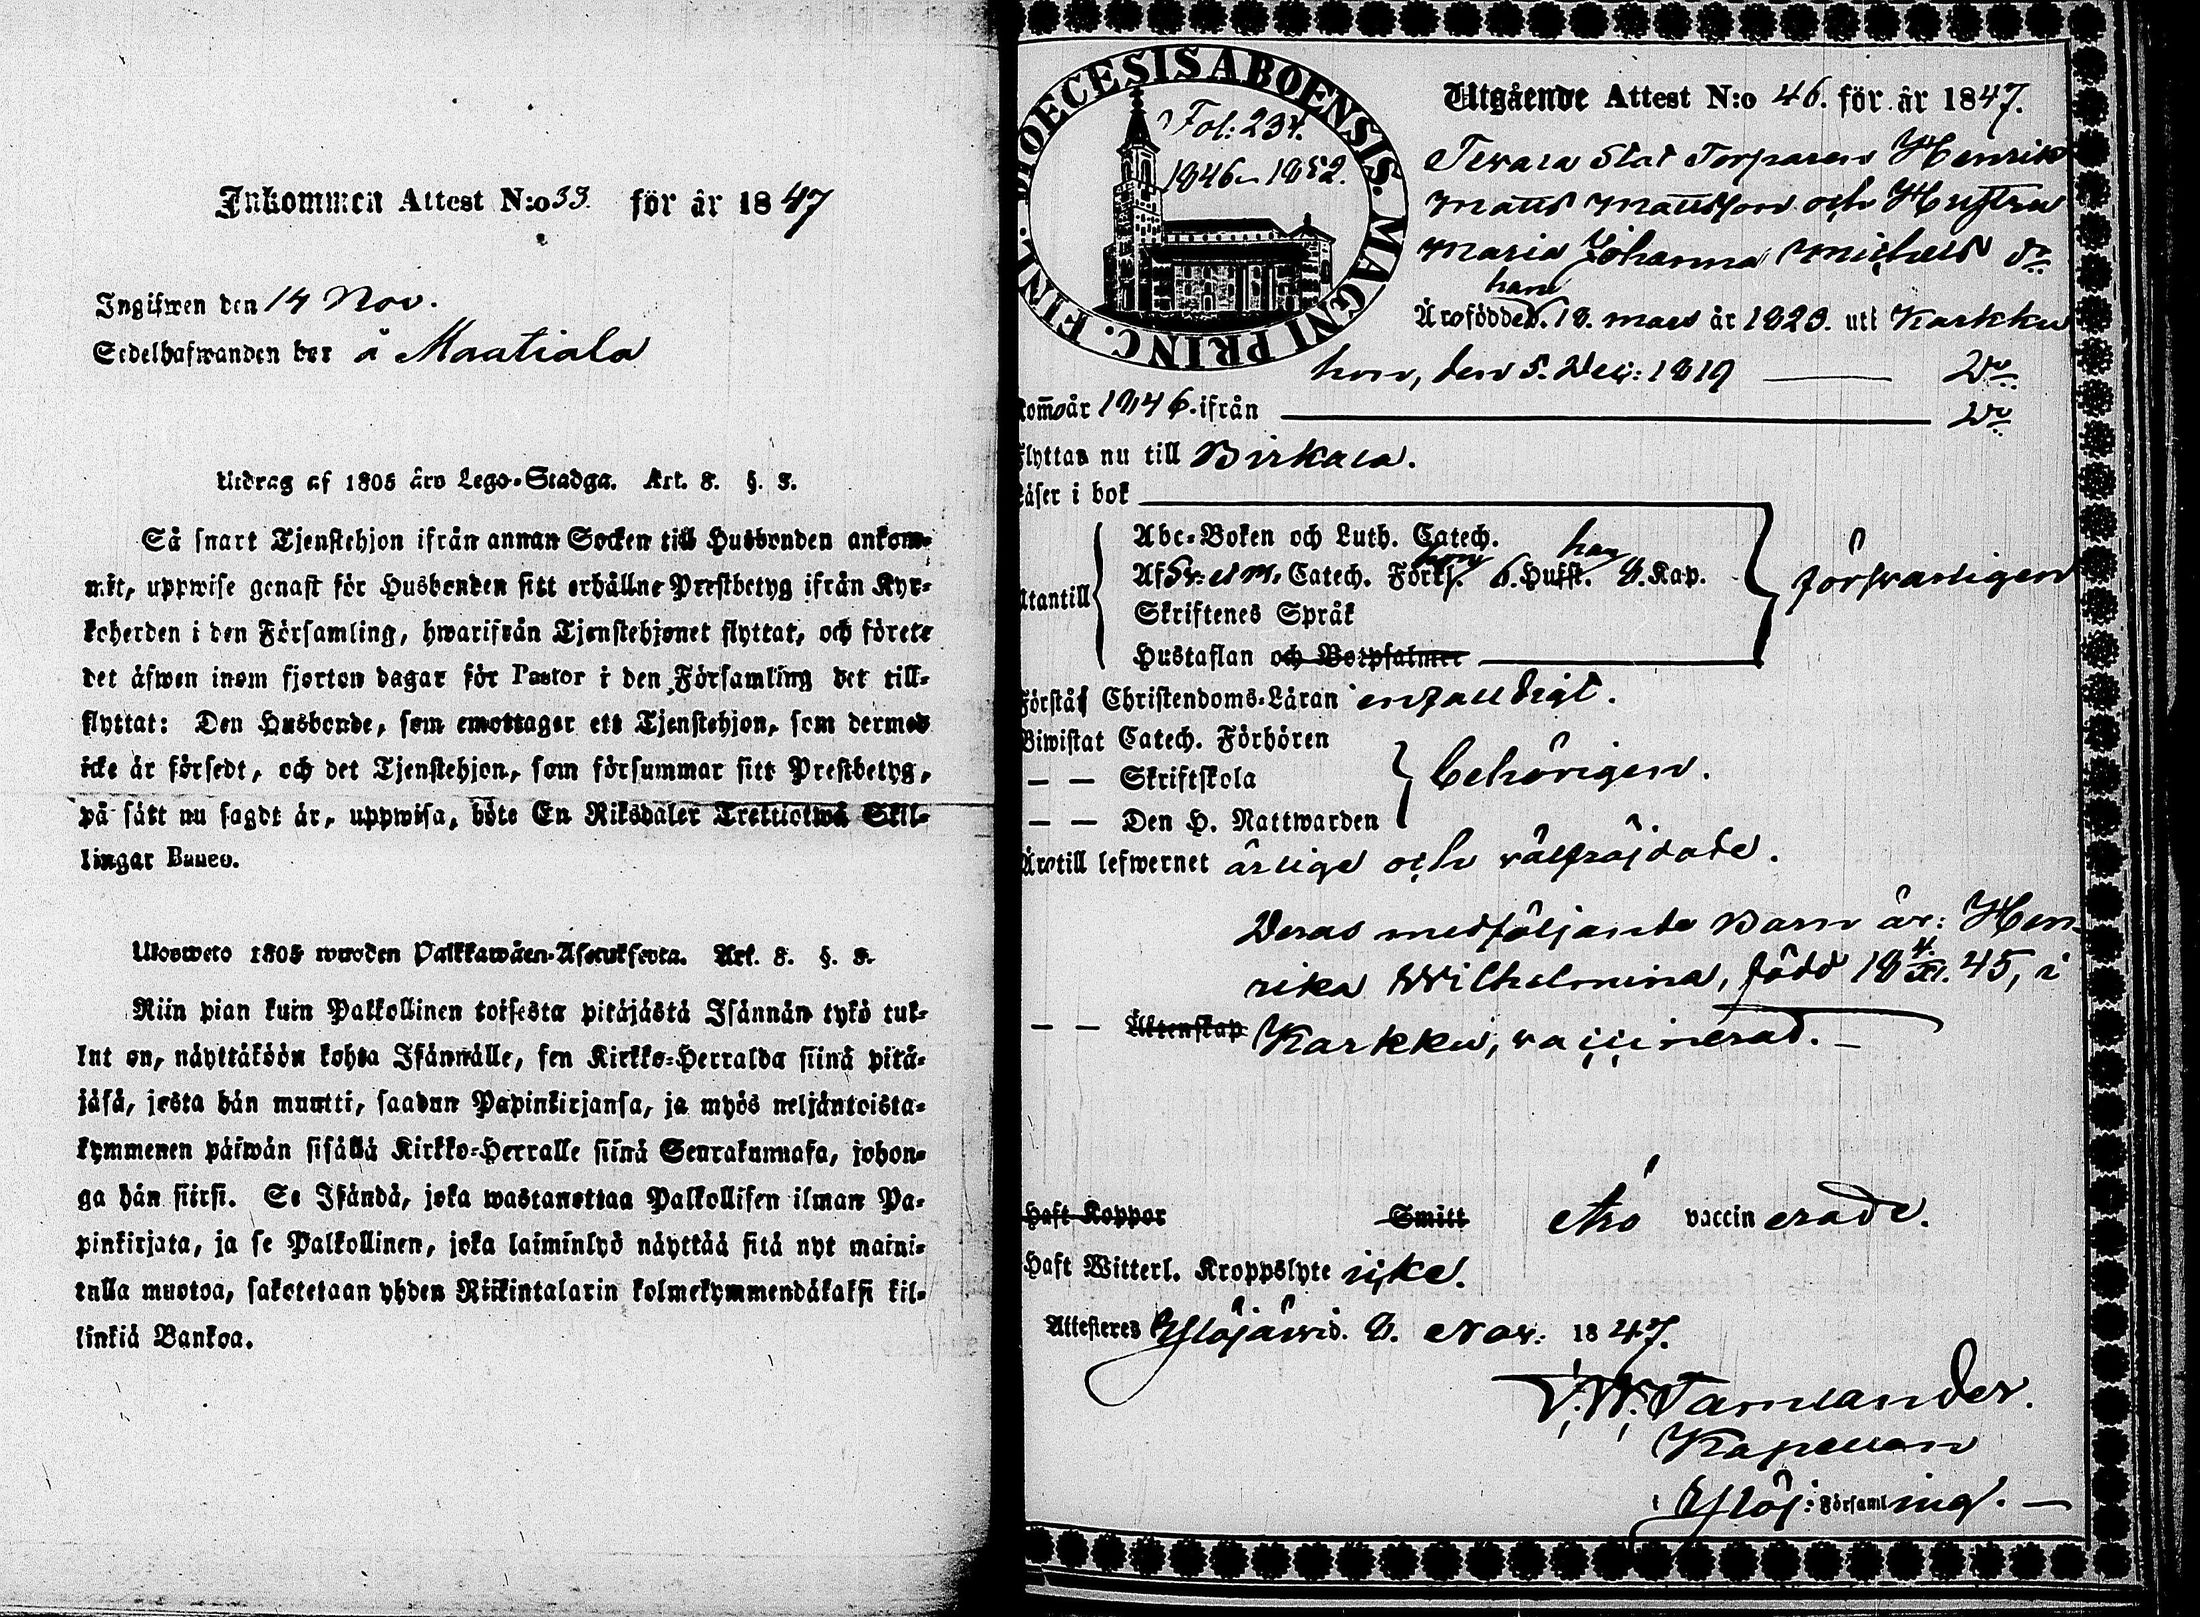 Inkommen Attest N:o 33. för år 1847
Ingifwen den 14 Nov.
Sedelhafwanden bor å Maatiala
Utdrag af 1805 års Lego-Stadga. Art. 8. §. 3.
Så snart Tjenstehjon ifrån annan Socken till Husbonden ankom-
mit, uppwise genast för Husbonden sitt erhållne Prestbetyg ifrån Kyr-
koherden i den Församling, hwarifrån Tjenstehjonet flyttat, och förete
det äfwen inom fjorton dagar för Pastor i den Församling det till-
flyttat: Den Husbonde, som emottager ett Tjenstehjon, som dermed
icke är försedt, och det Tjenstehjon, som försummar sitt Prestbetyg,
på sätt nu sagdt är, uppwisa, böte En Riksdaler Trettiotwå Skil-
lingar Banco.
Ulosweto 1805 wuoden Palkkawäen-Asetuksesta. Art. 8. §. 3.
Niin pian kuin Palkollinen toisesta pitäjästä Isännän tykö tul-
lut on, näyttäköön kohta Isännälle, sen Kirkko-Herralda siinä pitä-
jäsä, josta hän muutti, saadun Papinkirjansa, ja myös neljäntoista-
kymmenen päiwän sisällä Kirkko-Herralle siinä Seurakunnasa, johon-
ga hän siirsi. Se Isändä, joka wastanottaa Palkollisen ilman Pa-
pinkirjata, ja se Palkollinen, joka laiminlyö näyttää sitä nyt maini-
tulla muotoa, sakotetaan yhden Riikintalarin kolmekymmendäkaksi kil-
linkiä Bankoa.
DIOECESIS ABOENSIS. MAGNI PRINC. FINL.
Fol: 234.
1846-1852.
Utgående Attest N:o 46. för år 1847.
Stat Torparen Henrik
Matts Mattsson och Hustru
Maria Johanna Michels dr
han
Äro födde d. 18. mars år 1823. uti Karkku
hon, den 5. Dec: 1819 Do
Kommo år 1846. ifrån Do
Flyttas nu till Birkala.
Läser i bok
Abc-Boken och Luth. Catech.
hon han
Af Catech. Förkl. 6. Hufst. 8. Kap.
Utantill försvarligen
Skriftenes Språk
Hustaflan och Botpsalmer
Förstå Christendoms-Läran enfaldigt.
Biwistat Catech. Förhören
— — Skriftskola behörigen.
— — Den H. Nattwarden
Äro till lefwernet ärlige och välfräjdade.
Deras medföljande Barn är: Hen-
rika Wilhelmina, född 18 4/XI. 45, i
— — Äktenskap Karkku, vaccinerad. —
Haft Koppor Smitt Äro vaccinerade.
Haft Witterl. Kroppslyte icke.
Attesteres Ylöjärwi d. 8. Nov: 1847.
Kapellan
i Ylöj: Församling. —